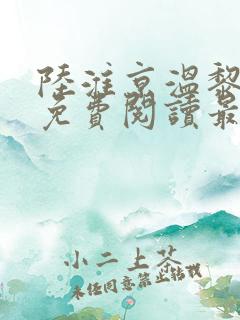 陸淮京溫黎
免費閱讀最
小二上茶
未經同意禁止轉載